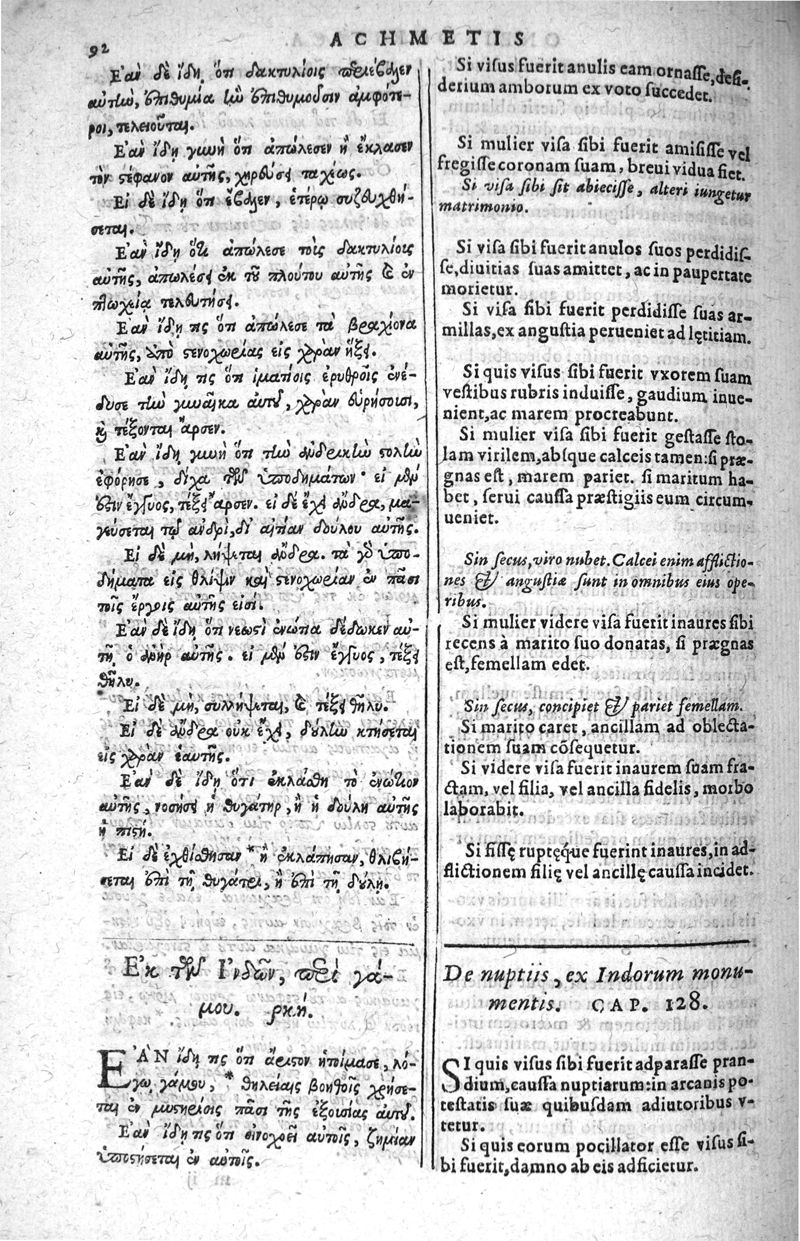 92
ACHMETIS
Ἐὰν δὲ ἴδῃ ὅτι δακτυλίοις περιέβαλεν
αὐτὴν, ἐπιθυμία ἣν ἐπιθυμοῦσιν ἀμφότε-
ροι, τελειοῦται.
Ἐὰν ἴδῃ γυνὴ ὅτι ἀπώλεσεν ἢ ἔκλασεν
τὸν στέφανον αὐτῆς, χηρεύσει ταχέως.
Εἰ δὲ ἴδῃ ὅτι ἔβαλεν, ἑτέρῳ συζευχθή-
σεται.
Ἐὰν ἴδῃ ὅτι ἀπώλεσε τοὺς δακτυλίους
αὐτῆς, ἀπωλέσει ἐκ τοῦ πλούτου αὐτῆς καὶ ἐν
πτωχείᾳ τελευτήσει.
Ἐὰν ἴδῃ τις ὅτι ἀπώλεσε τὰ βραχιόνια
αὐτῆς, ἀπὸ στενοχωρίας εἰς χαρὰν ἥξει.
Ἐὰν ἴδῃ τις ὅτι ἱματίοις ἐρυθροῖς ἐνέ-
δυσε τὴν γυναῖκα αὐτοῦ, χαρὰν εὑρήσουσι,
καὶ τέξονται ἄρσεν.
Ἐὰν ἴδῃ γυνὴ ὅτι τὴν ἀνδρικὴν στολὴν
ἐφόρησε, δίχα τῶν ὑποδημάτων· εἰ μὲν
ἐστὶν ἔγγυος, τέξει ἄρσεν. εἰ δὲ ἔχει ἄνδρα, μα-
γεύσεται τῷ ἀνδρὶ, δι' αἰτίαν δούλου αὐτῆς.
Εἰ δὲ μὴ, λήψεται ἄνδρα. τὰ γὰρ ὑπο-
δήματα εἰς θλίψιν καὶ στενοχωρίαν ἐν πᾶσι
τοῖς ἔργοις αὐτῆς εἰσί.
Ἐὰν δὲ ἴδῃ ὅτι νεωστὶ ἐνώτια δέδωκεν αὐ-
τῇ ὁ ἀνὴρ αὐτῆς. εἰ μὲν ἐστὶν ἔγγυος, τέξει
θῆλυ.
Εἰ δὲ μὴ, συλλήψεται, καὶ τέξει θῆλυ.
Εἰ δὲ ἄνδρα οὐκ ἔχει, δούλην κτήσεται
εἰς χαρὰν ἑαυτῆς.
Ἐὰν δὲ ἴδῃ ὅτι ἐκλάσθη τὸ ἐνώτιον
αὐτῆς, νοσήσει ἡ θυγάτηρ, ἢ ἡ δούλη αὐτῆς
ἡ πιστή.
Εἰ δὲ ἐσχίσθησαν * ἢ ἐκλάπησαν, θλιβή-
σεται ἐπὶ τῇ θυγατρὶ, ἢ ἐπὶ τῇ δούλῃ.
Ἐκ τῶν Ἰνδῶν, περὶ γά-
μου. ρκή.
ΕᾺΝ ἴδῃ τις ὅτι ἄριστον ἡτοίμασε, λό-
γῳ γάμου, * θηλείαις βοηθοῖς χρήσε-
ται ἐν μυστηρίοις πᾶσι τῆς ἐξουσίας αὐτοῦ.
Ἐὰν ἴδῃ τις ὅτι οἰνοχοεῖ αὐτοῖς, ζημίαν
ὑποστήσεται ἐν αὐτοῖς.
Si visus fuerit anulis eam ornasse, desi-
derium amborum ex voto succedet.
Si mulier visa sibi fuerit amisisse vel
fregisse coronam suam, breui vidua fiet.
Si visa sibi sit abiecisse, alteri iungetur
matrimonio.
Si visa sibi fuerit anulos suos perdidis-
se, diuitias suas amittet, ac in paupertate
morietur.
Si visa sibi fuerit perdidisse suas ar-
millas, ex angustia perueniet ad lętitiam.
Si quis visus sibi fuerit vxorem suam
vestibus rubris induisse, gaudium inue-
nient, ac marem procreabunt.
Si mulier visa sibi fuerit gestasse sto-
lam virilem, absque calceis tamen: si præ-
gnas est, marem pariet. si maritum ha-
bet, serui caussa præstigiis eum circum-
ueniet.
Sin secus, viro nubet. Calcei enim afflictio-
nes & angustiæ sunt in omnibus eius ope-
ribus.
Si mulier videre visa fuerit inaures sibi
recens à marito suo donatas, si prægnas
est, femellam edet.
Sin secus, concipiet & pariet femellam.
Si marito caret, ancillam ad oblecta-
tionem suam cōsequetur.
Si videre visa fuerit inaurem suam fra-
ctam, vel filia, vel ancilla fidelis, morbo
laborabit.
Si fissę ruptęque fuerint inaures, in ad-
flictionem filię vel ancillę caussa incidet.
De nuptiis, ex Indorum monu-
mentis. CAP. 128.
SI quis visus sibi fuerit adparasse pran-
dium, caussa nuptiarum: in arcanis po-
testatis suæ quibusdam adiutoribus v-
tetur.
Si quis eorum pocillator esse visus si-
bi fuerit, damno ab eis adficietur.
m ij